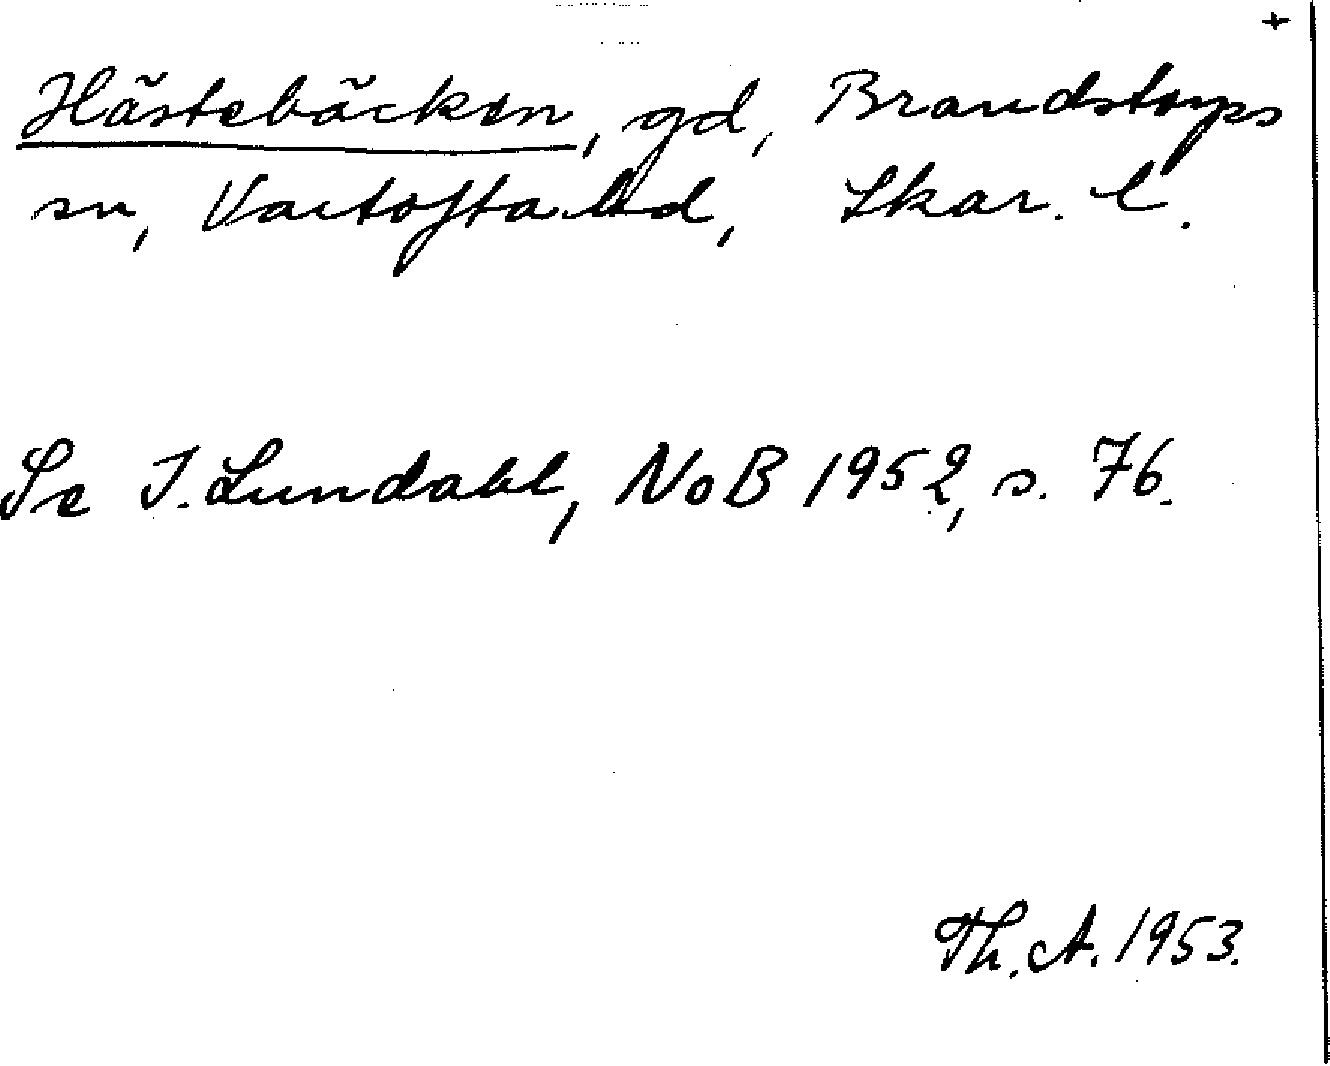 +
Hästebäcken, gd, Brandstorps
sn, Vartofta hd, Skar. l.
Se I. Lundahl, NoB 1952, s. 76.
Th. A. 1953.